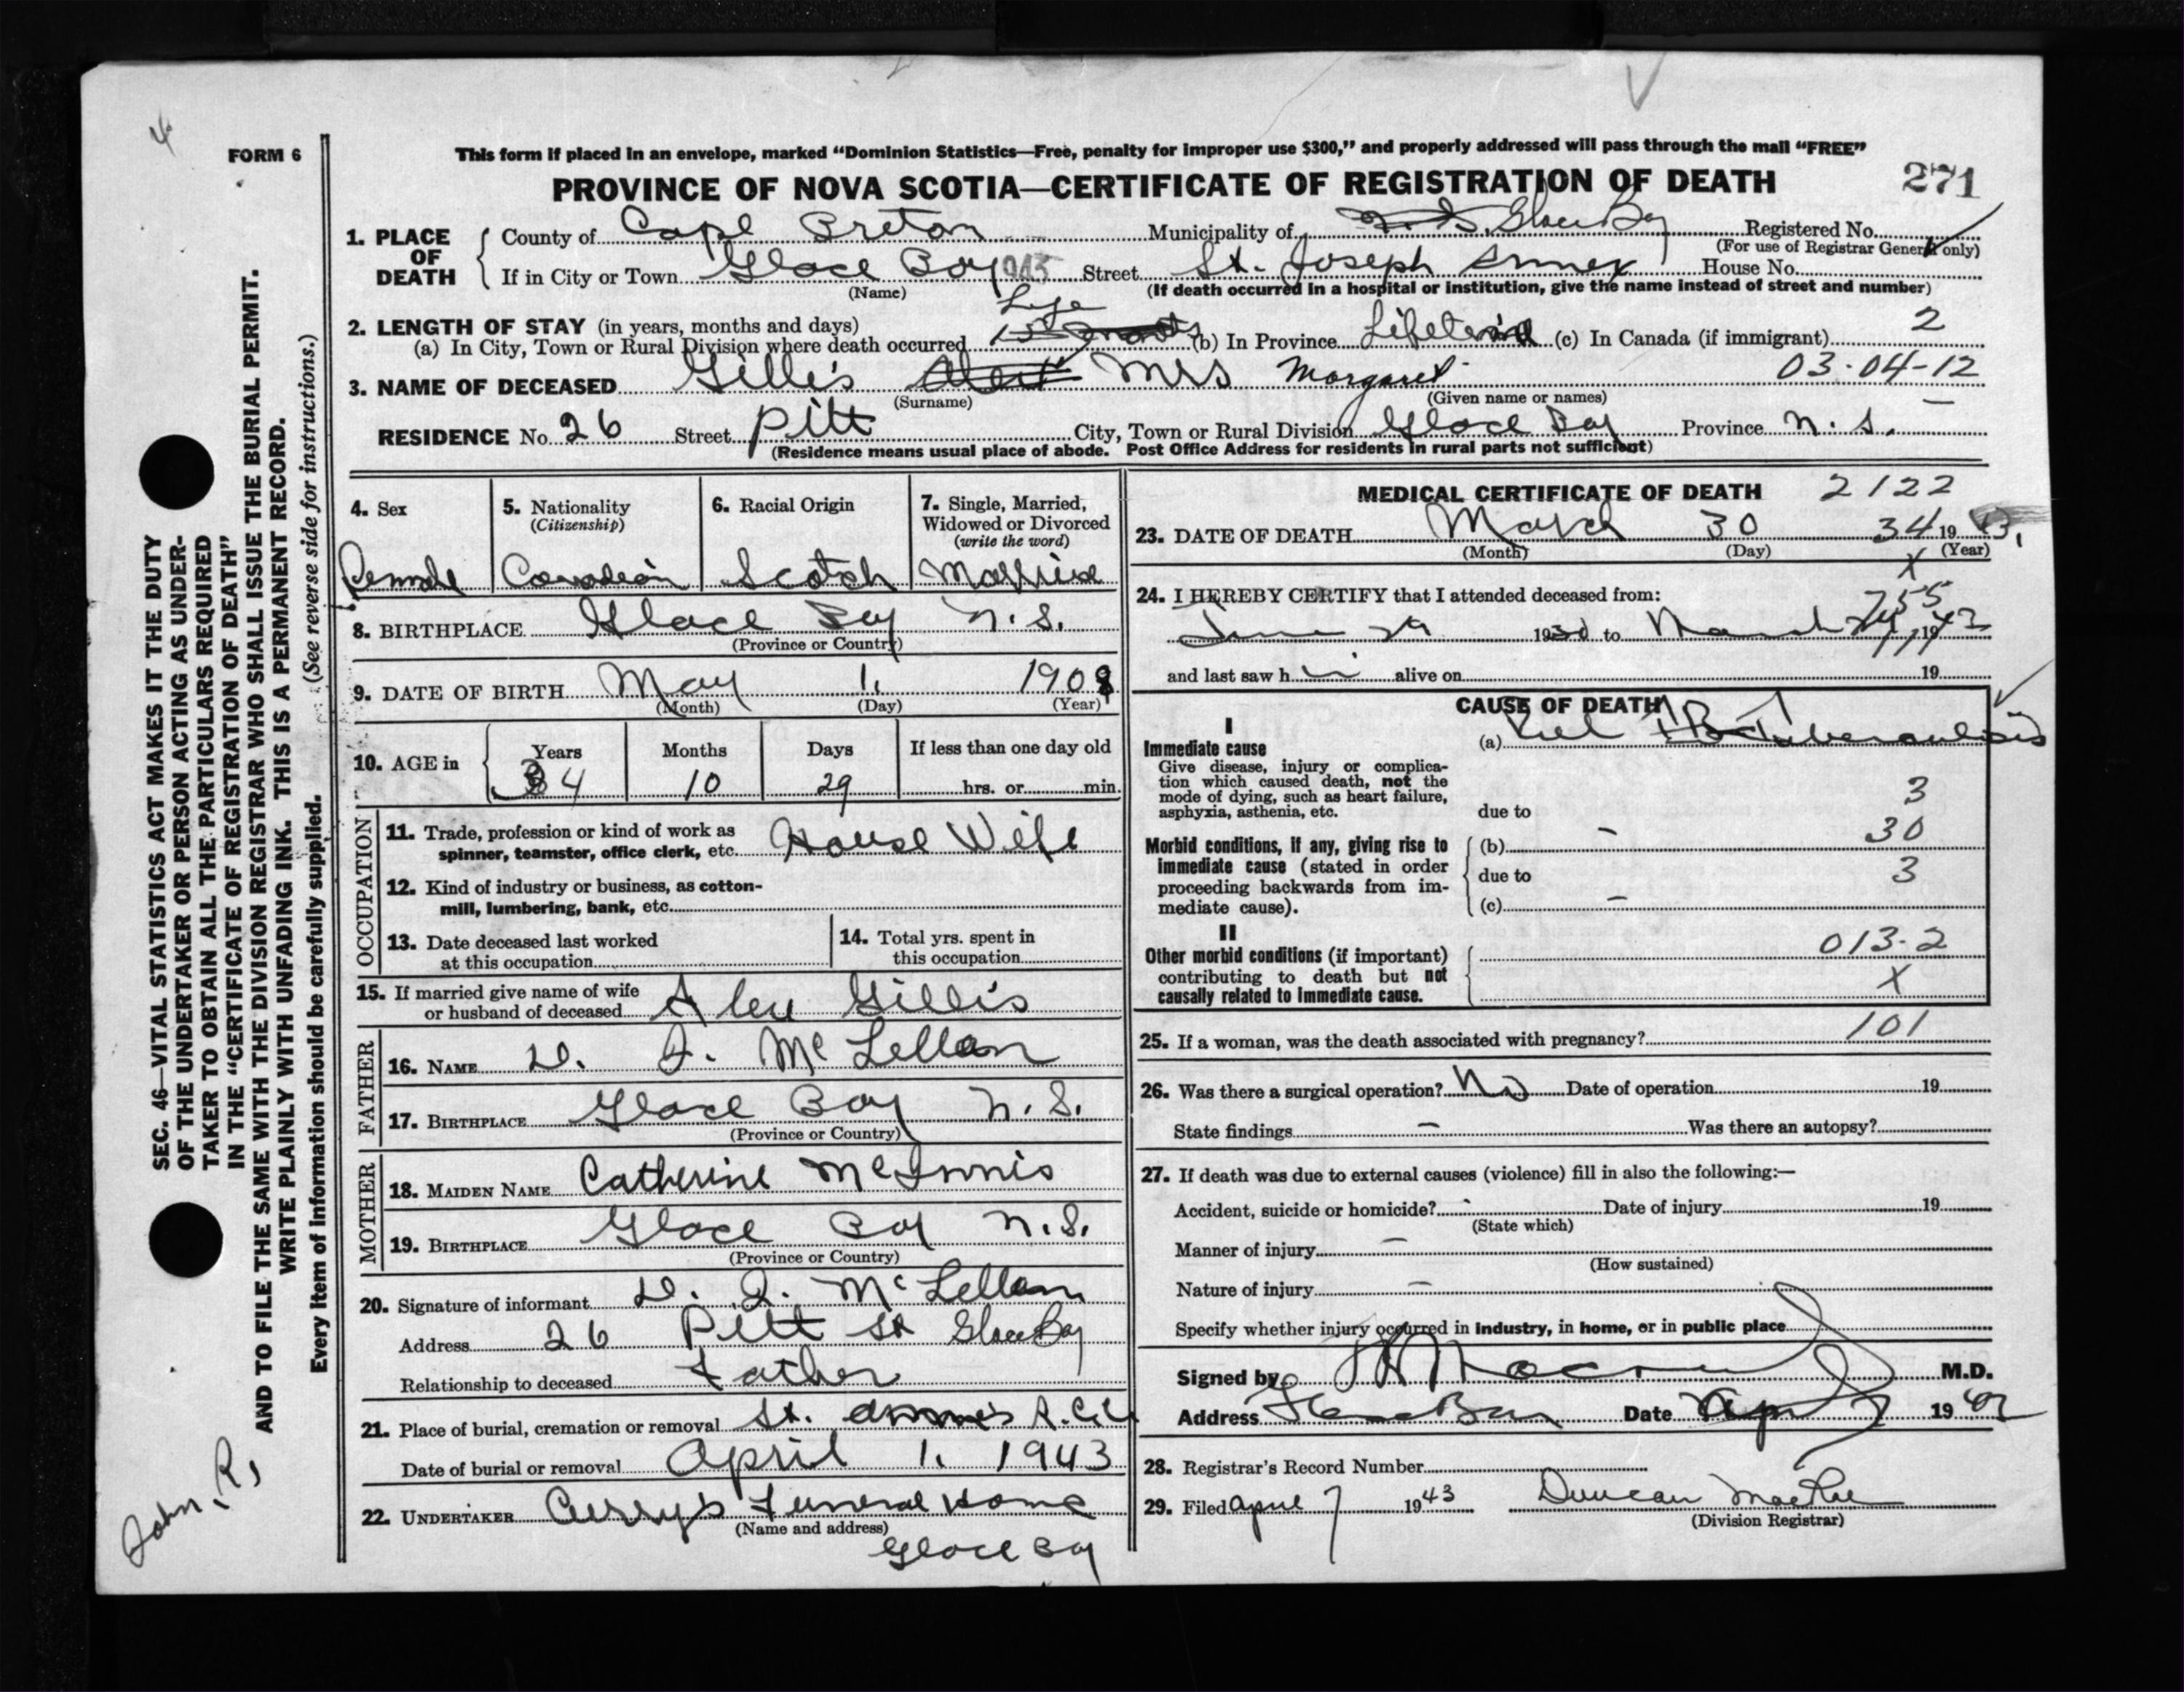 4
FORM 6
This form if placed in an envelope, marked “Dominion Statistics—Free, penalty for improper use $300,” and properly addressed will pass through the mail “FREE”
PROVINCE OF NOVA SCOTIA—CERTIFICATE OF REGISTRATION OF DEATH 271
1. PLACE OF DEATH
County of Cape Breton Municipality of Glace Bay Registered No.
(For use of Registrar General only)
If in City or Town Glace Bay Street St. Joseph Annex House No.
(Name) (If death occurred in a hospital or institution, give the name instead of street and number)
2. LENGTH OF STAY (in years, months and days) Life
(a) In City, Town or Rural Division where death occurred (b) In Province Lifetime (c) In Canada (if immigrant) 2
3. NAME OF DECEASED Gillis Mrs Margaret 03-04-12
(Surname) (Given name or names)
RESIDENCE No. 26 Street Pitt City, Town or Rural Division Glace Bay Province N. S.
(Residence means usual place of abode. Post Office Address for residents in rural parts not sufficient)
4. Sex
Female
5. Nationality
(Citizenship)
Canadian
6. Racial Origin
Scotch
7. Single, Married,
Widowed or Divorced
(write the word)
Married
8. BIRTHPLACE Glace Bay N. S.
(Province or Country)
9. DATE OF BIRTH May 1, 1908
(Month) (Day) (Year)
10. AGE in Years Months Days If less than one day old
34 10 29 hrs. or min.
OCCUPATION
11. Trade, profession or kind of work as
spinner, teamster, office clerk, etc. House Wife
12. Kind of industry or business, as cotton-
mill, lumbering, bank, etc.
13. Date deceased last worked
at this occupation
14. Total yrs. spent in
this occupation
15. If married give name of wife
or husband of deceased Alex Gillis
FATHER
16. NAME D. J. McLellan
17. BIRTHPLACE Glace Bay N. S.
(Province or Country)
MOTHER
18. MAIDEN NAME Catherine McInnis
19. BIRTHPLACE Glace Bay N. S.
(Province or Country)
20. Signature of informant D. J. McLellan
Address 26 Pitt St Glace Bay
Relationship to deceased Father
21. Place of burial, cremation or removal St. Anne's R.C.
Date of burial or removal April 1, 1943
22. UNDERTAKER Curry's Funeral Home
(Name and address)
Glace Bay
MEDICAL CERTIFICATE OF DEATH 2122
23. DATE OF DEATH March 30 34 1943,
(Month) (Day) (Year)
X
24. I HEREBY CERTIFY that I attended deceased from:
June 29 19 to March 24, 1943
and last saw h alive on 19
CAUSE OF DEATH
I
Immediate cause
Give disease, injury or complica-
tion which caused death, not the
mode of dying, such as heart failure,
asphyxia, asthenia, etc.
(a) TB Tuberculosis
3
due to
30
Morbid conditions, if any, giving rise to
immediate cause (stated in order
proceeding backwards from im-
mediate cause).
(b) –
due to 3
(c) –
II
Other morbid conditions (if important)
contributing to death but not
causally related to immediate cause.
013-2
X
25. If a woman, was the death associated with pregnancy? 101
26. Was there a surgical operation? No Date of operation 19
State findings – Was there an autopsy?
27. If death was due to external causes (violence) fill in also the following:—
Accident, suicide or homicide? - Date of injury 19
(State which)
Manner of injury –
(How sustained)
Nature of injury –
Specify whether injury occurred in industry, in home, or in public place
Signed by M.D.
Address Glace Bay Date Apr 7 19
28. Registrar's Record Number
29. Filed April 7 1943 Duncan MacRae
(Division Registrar)
SEC. 46—VITAL STATISTICS ACT MAKES IT THE DUTY
OF THE UNDERTAKER OR PERSON ACTING AS UNDER-
TAKER TO OBTAIN ALL THE PARTICULARS REQUIRED
IN THE “CERTIFICATE OF REGISTRATION OF DEATH”
AND TO FILE THE SAME WITH THE DIVISION REGISTRAR WHO SHALL ISSUE THE BURIAL PERMIT.
WRITE PLAINLY WITH UNFADING INK. THIS IS A PERMANENT RECORD.
Every item of information should be carefully supplied. (See reverse side for instructions.)
John, R,